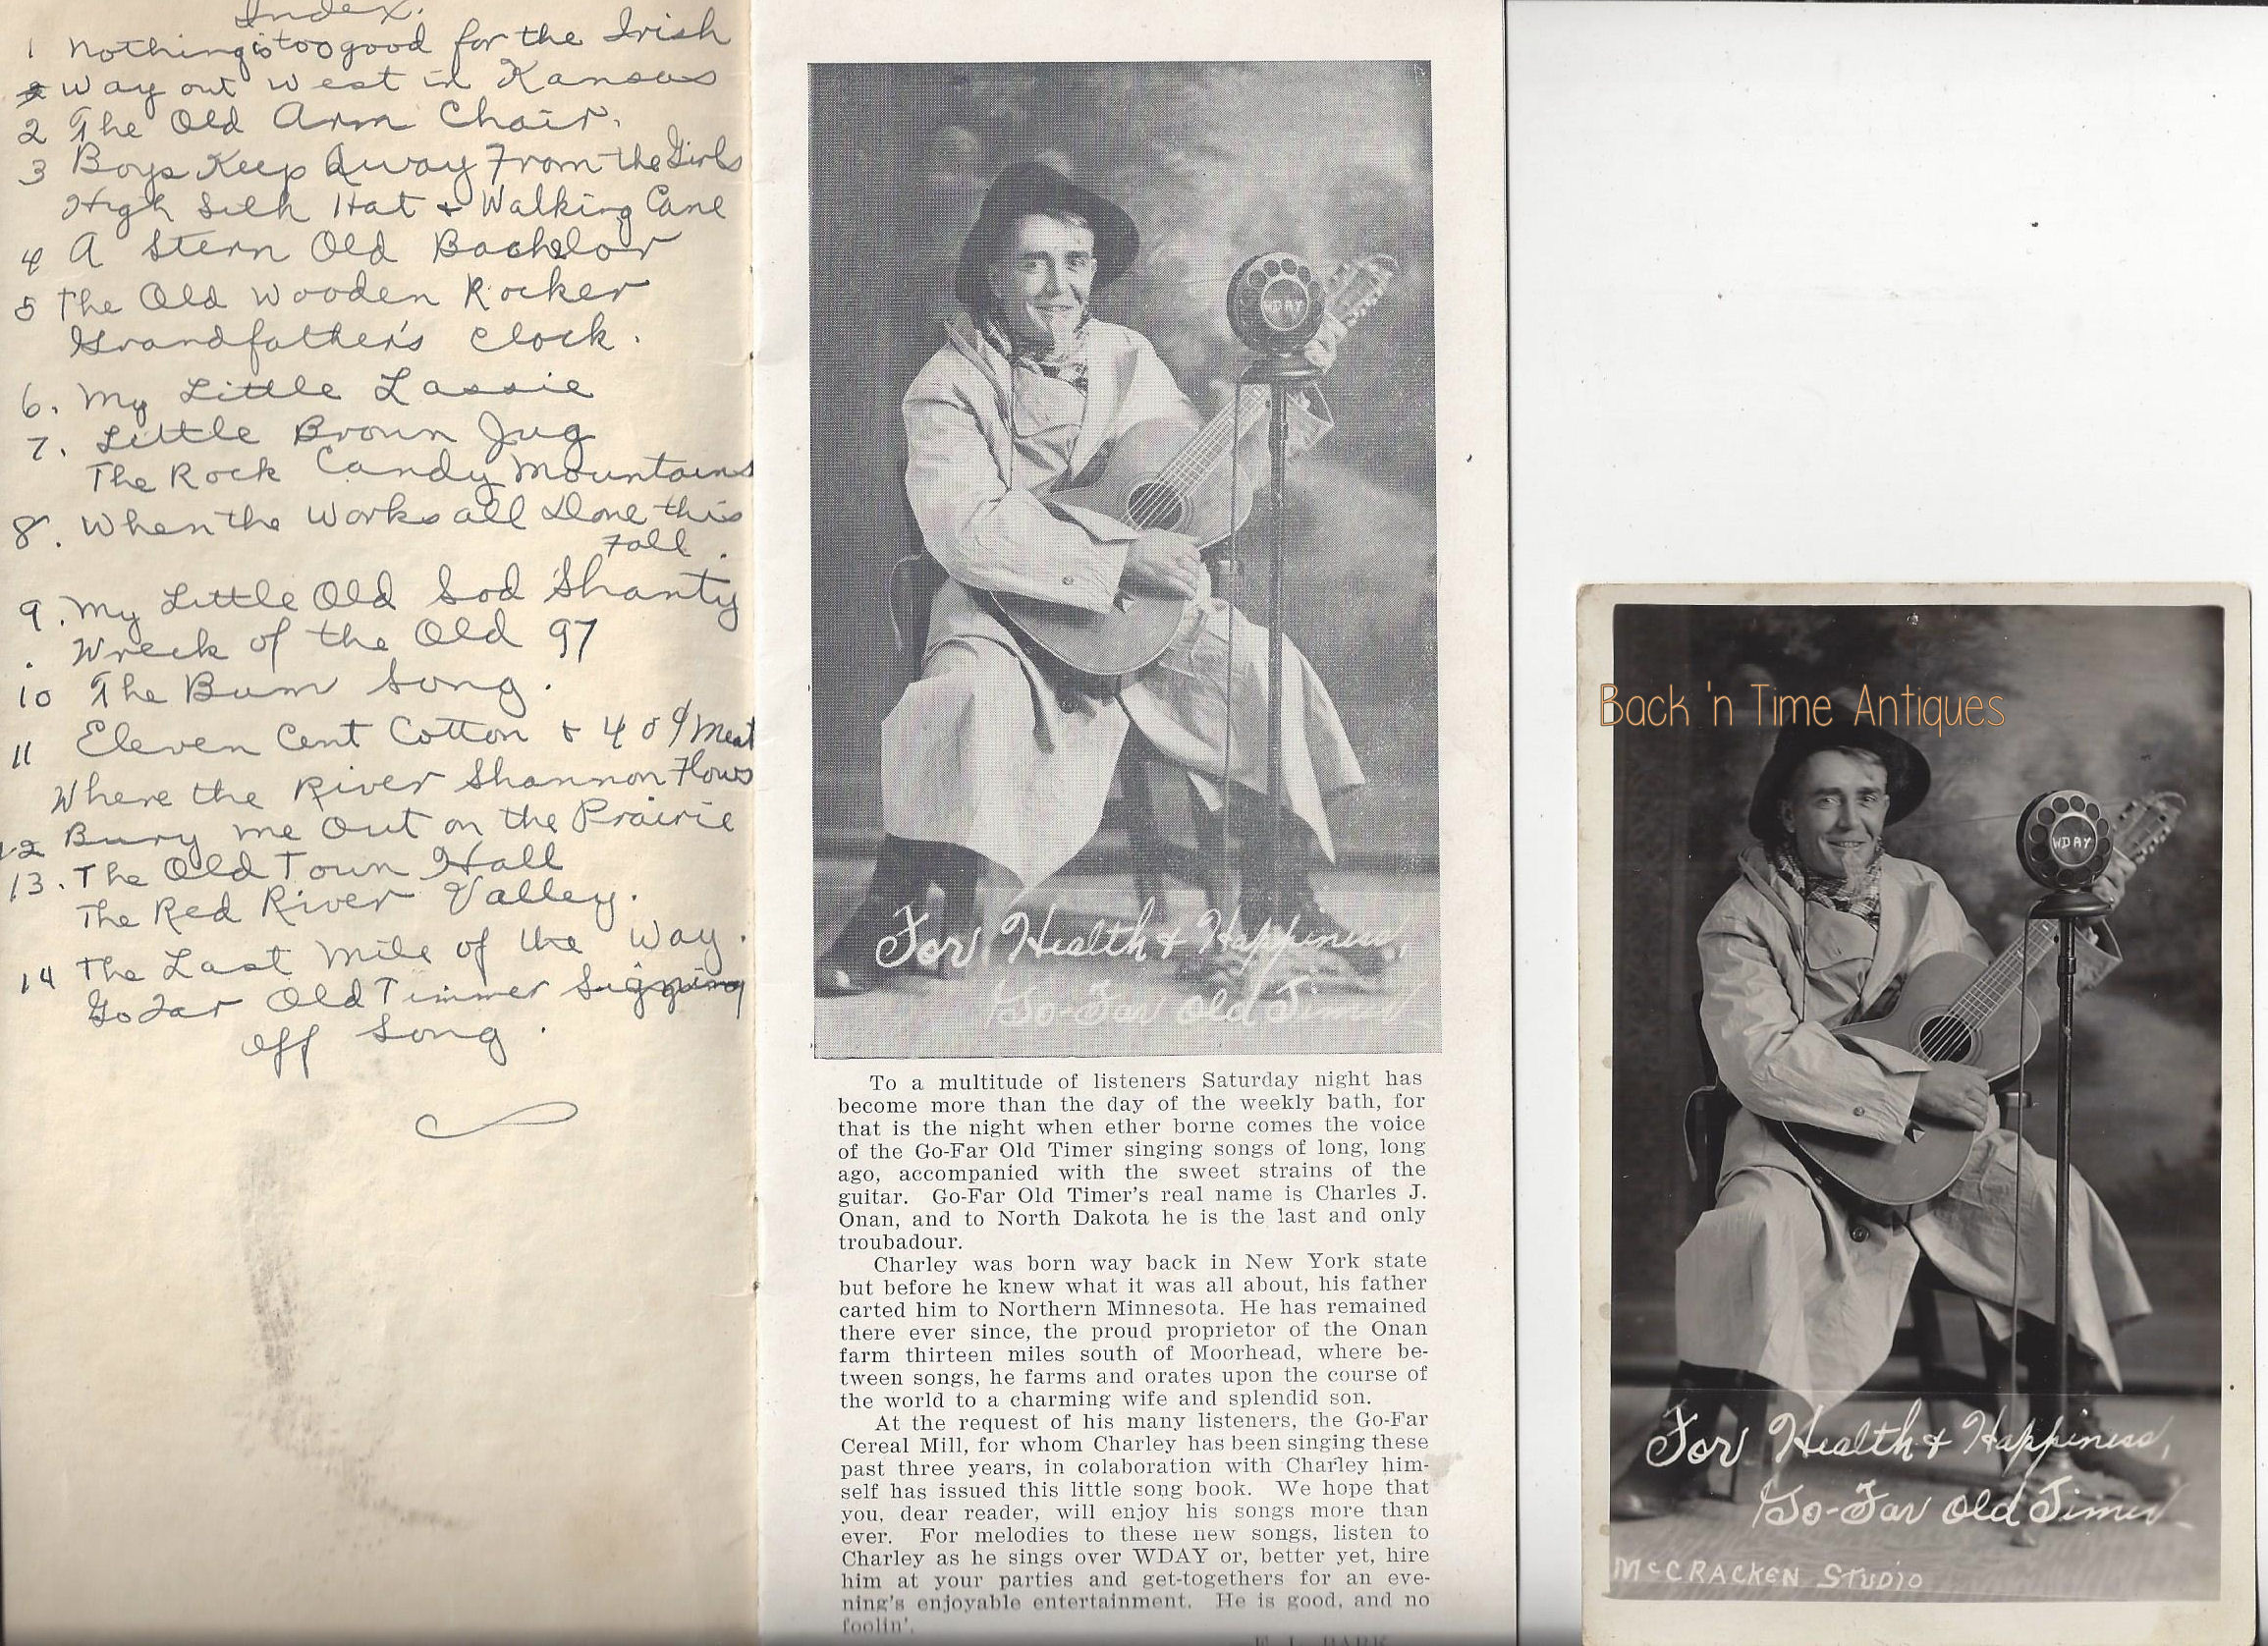 Index.
1 Nothing is too good for the Irish
Way out West in Kansas
2 The Old Arm Chair.
3 Boys Keep Away From the Girls
High Silk Hat & Walking Cane
4 A Stern Old Bachelor
5 The Old Wooden Rocker
Grandfather's Clock.
6. My Little Lassie
7. Little Brown Jug
The Rock Candy Mountains
8. When the Works all Done this
Fall.
9. My Little Old Sod Shanty
. Wreck of the Old 97
10 The Bum Song.
11 Eleven Cent Cotton & 40¢ Meat
Where the River Shannon Flows
12 Bury me Out on the Prairie
13. The Old Town Hall
The Red River Valley.
14 The Last Mile of the Way.
Gofar Old Timmer Signing
Off Song.
WDAY
For Health & Happiness,
Go-Far Old Timer
To a multitude of listeners Saturday night has
become more than the day of the weekly bath, for
that is the night when ether borne comes the voice
of the Go-Far Old Timer singing songs of long, long
ago, accompanied with the sweet strains of the
guitar. Go-Far Old Timer's real name is Charles J.
Onan, and to North Dakota he is the last and only
troubadour.
Charley was born way back in New York state
but before he knew what it was all about, his father
carted him to Northern Minnesota. He has remained
there ever since, the proud proprietor of the Onan
farm thirteen miles south of Moorhead, where be-
tween songs, he farms and orates upon the course of
the world to a charming wife and splendid son.
At the request of his many listeners, the Go-Far
Cereal Mill, for whom Charley has been singing these
past three years, in colaboration with Charley him-
self has issued this little song book. We hope that
you, dear reader, will enjoy his songs more than
ever. For melodies to these new songs, listen to
Charley as he sings over WDAY or, better yet, hire
him at your parties and get-togethers for an eve-
ning's enjoyable entertainment. He is good, and no
foolin'.
Back 'n Time Antiques
WDAY
For Health & Happiness,
Go-Far Old Timer
McCRACKEN STUDIO